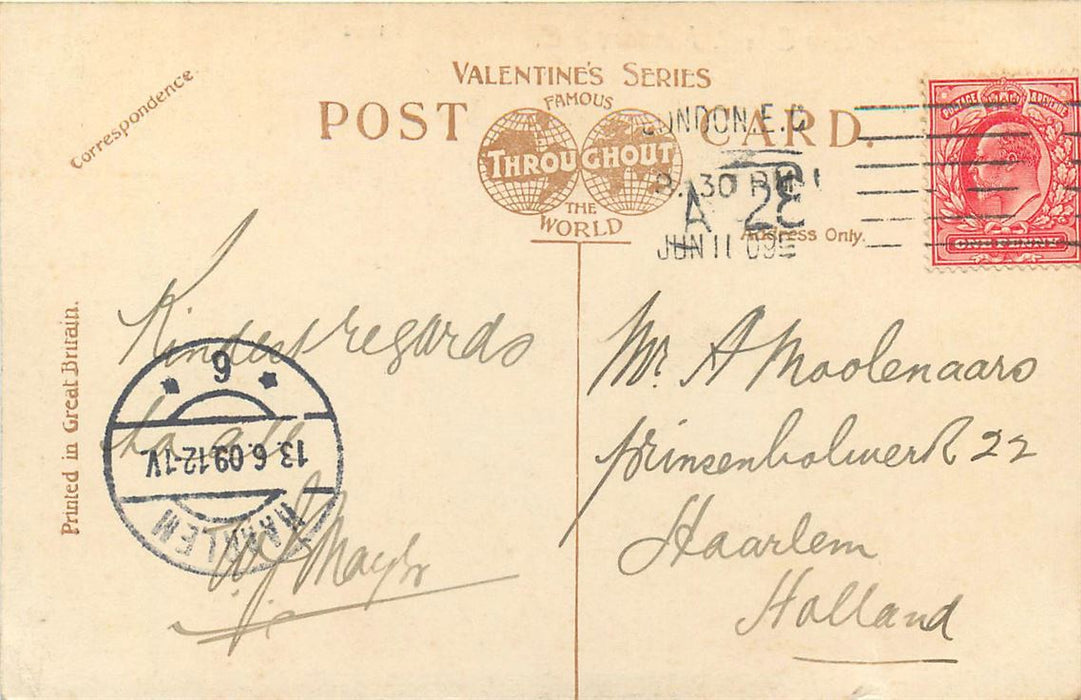 Correspondence.
VALENTINE'S SERIES
POST CARD.
FAMOUS
THROUGHOUT
THE
WORLD
LONDON. E.C
.30 PM
A 28
JUN 11 09
POSTAGE & REVENUE
ONE PENNY
Address Only.
Printed in Great Britain.
Kindest regards
to all
Mr. A Moolenaars
prinsenbolwerk 22
Haarlem
Holland
6
13.6.09.12-1V
HAARLEM